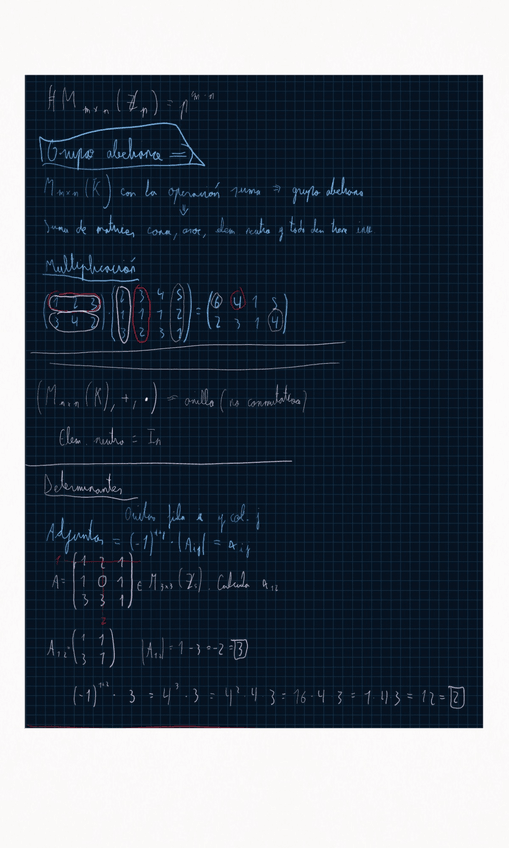 # M m×n (Z p) = p^m·n
Grupo abeliano =>
M m×n (K) con la operación suma => grupo abeliano
Suma de matrices conm, asoc, elem neutro y todo elem tiene
Multiplicación
(1 2 3) (2 3 4 5) = (6 4 1 5)
(3 4 2) (1 1 1 2) (2 3 1 4)
(3 2 3 1)
(M n×n (K), +, ·) = anillo (no conmutativo)
Elem. neutro = In
Determinantes
Quitas fila i y col. j
Adjuntos = (-1)^i+j · |Aij| = αij
1
A = (1 2 1)
(1 0 1) ∈ M 3×3 (Z5). Calcula α12
(3 3 1)
2
A12 = (1 1) |A12| = 1 - 3 = -2 = 3
(3 1)
(-1)^1+2 · 3 = 4^3 · 3 = 4^2 · 4 · 3 = 16 · 4 · 3 = 1 · 4 · 3 = 12 = 2